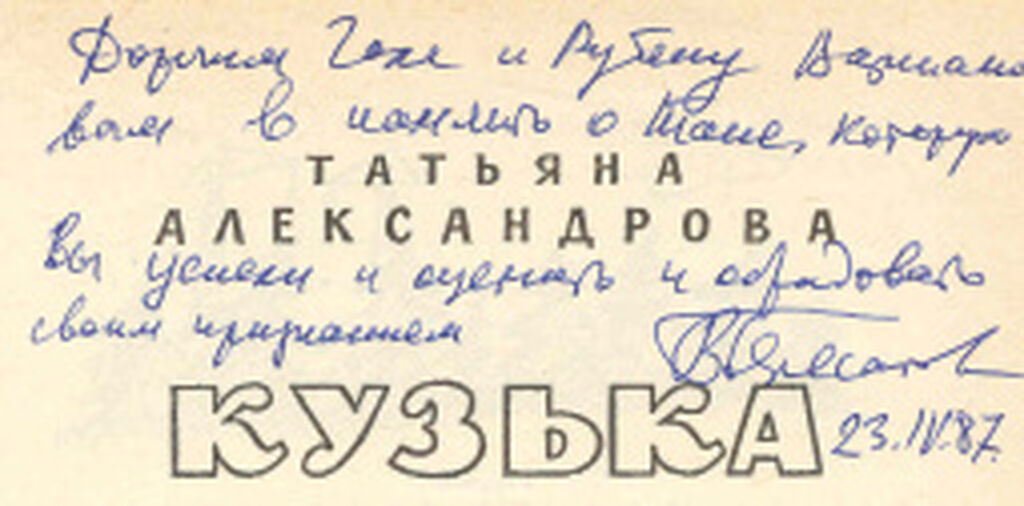 Дорогим Гале и Рубену Варшамо
вым в память о Тане, которую
ТАТЬЯНА
АЛЕКСАНДРОВА
Вы успели и оценить и обрадовать
своим признанием
В Берестов
КУЗЬКА
23.IV.87.